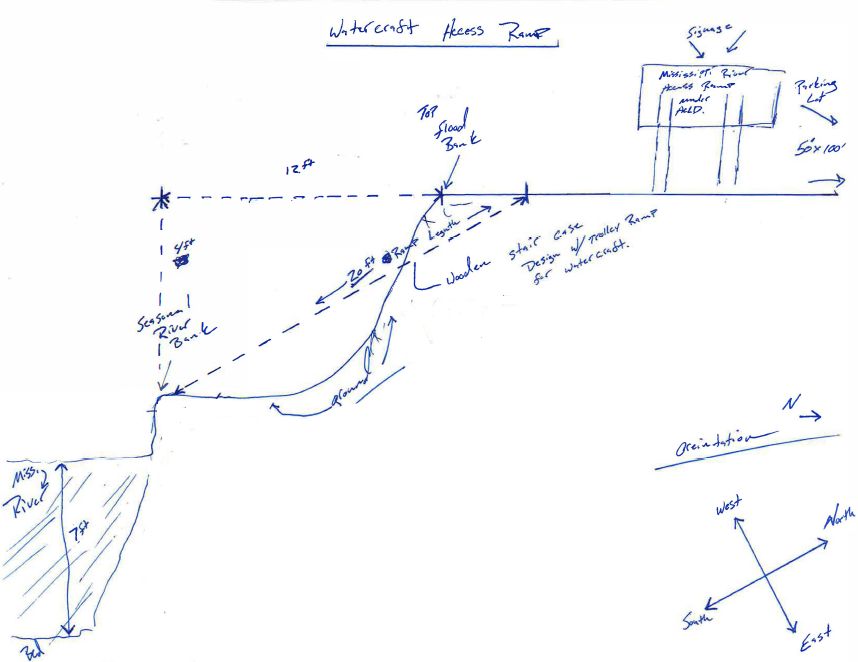 Watercraft Access Ramp
Signage
Mississippi River
Access Ramp
under
Parking
Lot
50'x100'
Top
Flood
Bank
12 ft
4ft
20 ft Ramp Length
Wooden Stair Case
Design w/ Trolley Ramp
for watercraft.
Seasonal
River
Bank
ground
N
Oreintation
Miss.
River
7ft
Bed
West
North
South
East